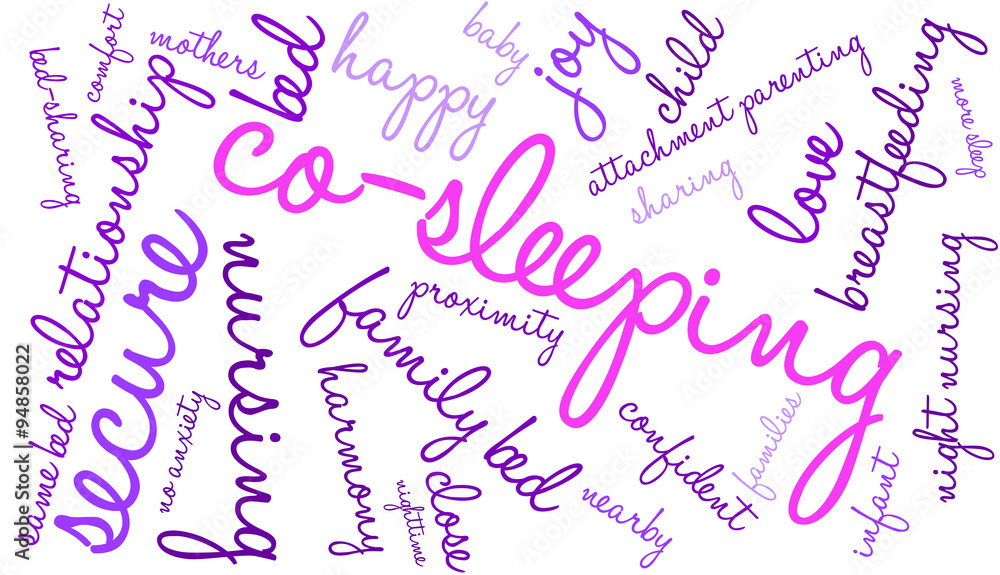 comfort
mothers
bed
happy
baby
joy
child
attachment parenting
sharing
love
breastfeeding
more sleep
bed-sharing
relationship
co-sleeping
secure
nursing
proximity
family bed
same bed
no anxiety
harmony
nighttime
close
nearby
confident
families
infant
night nursing
Adobe Stock | #94858022
Adobe Stock